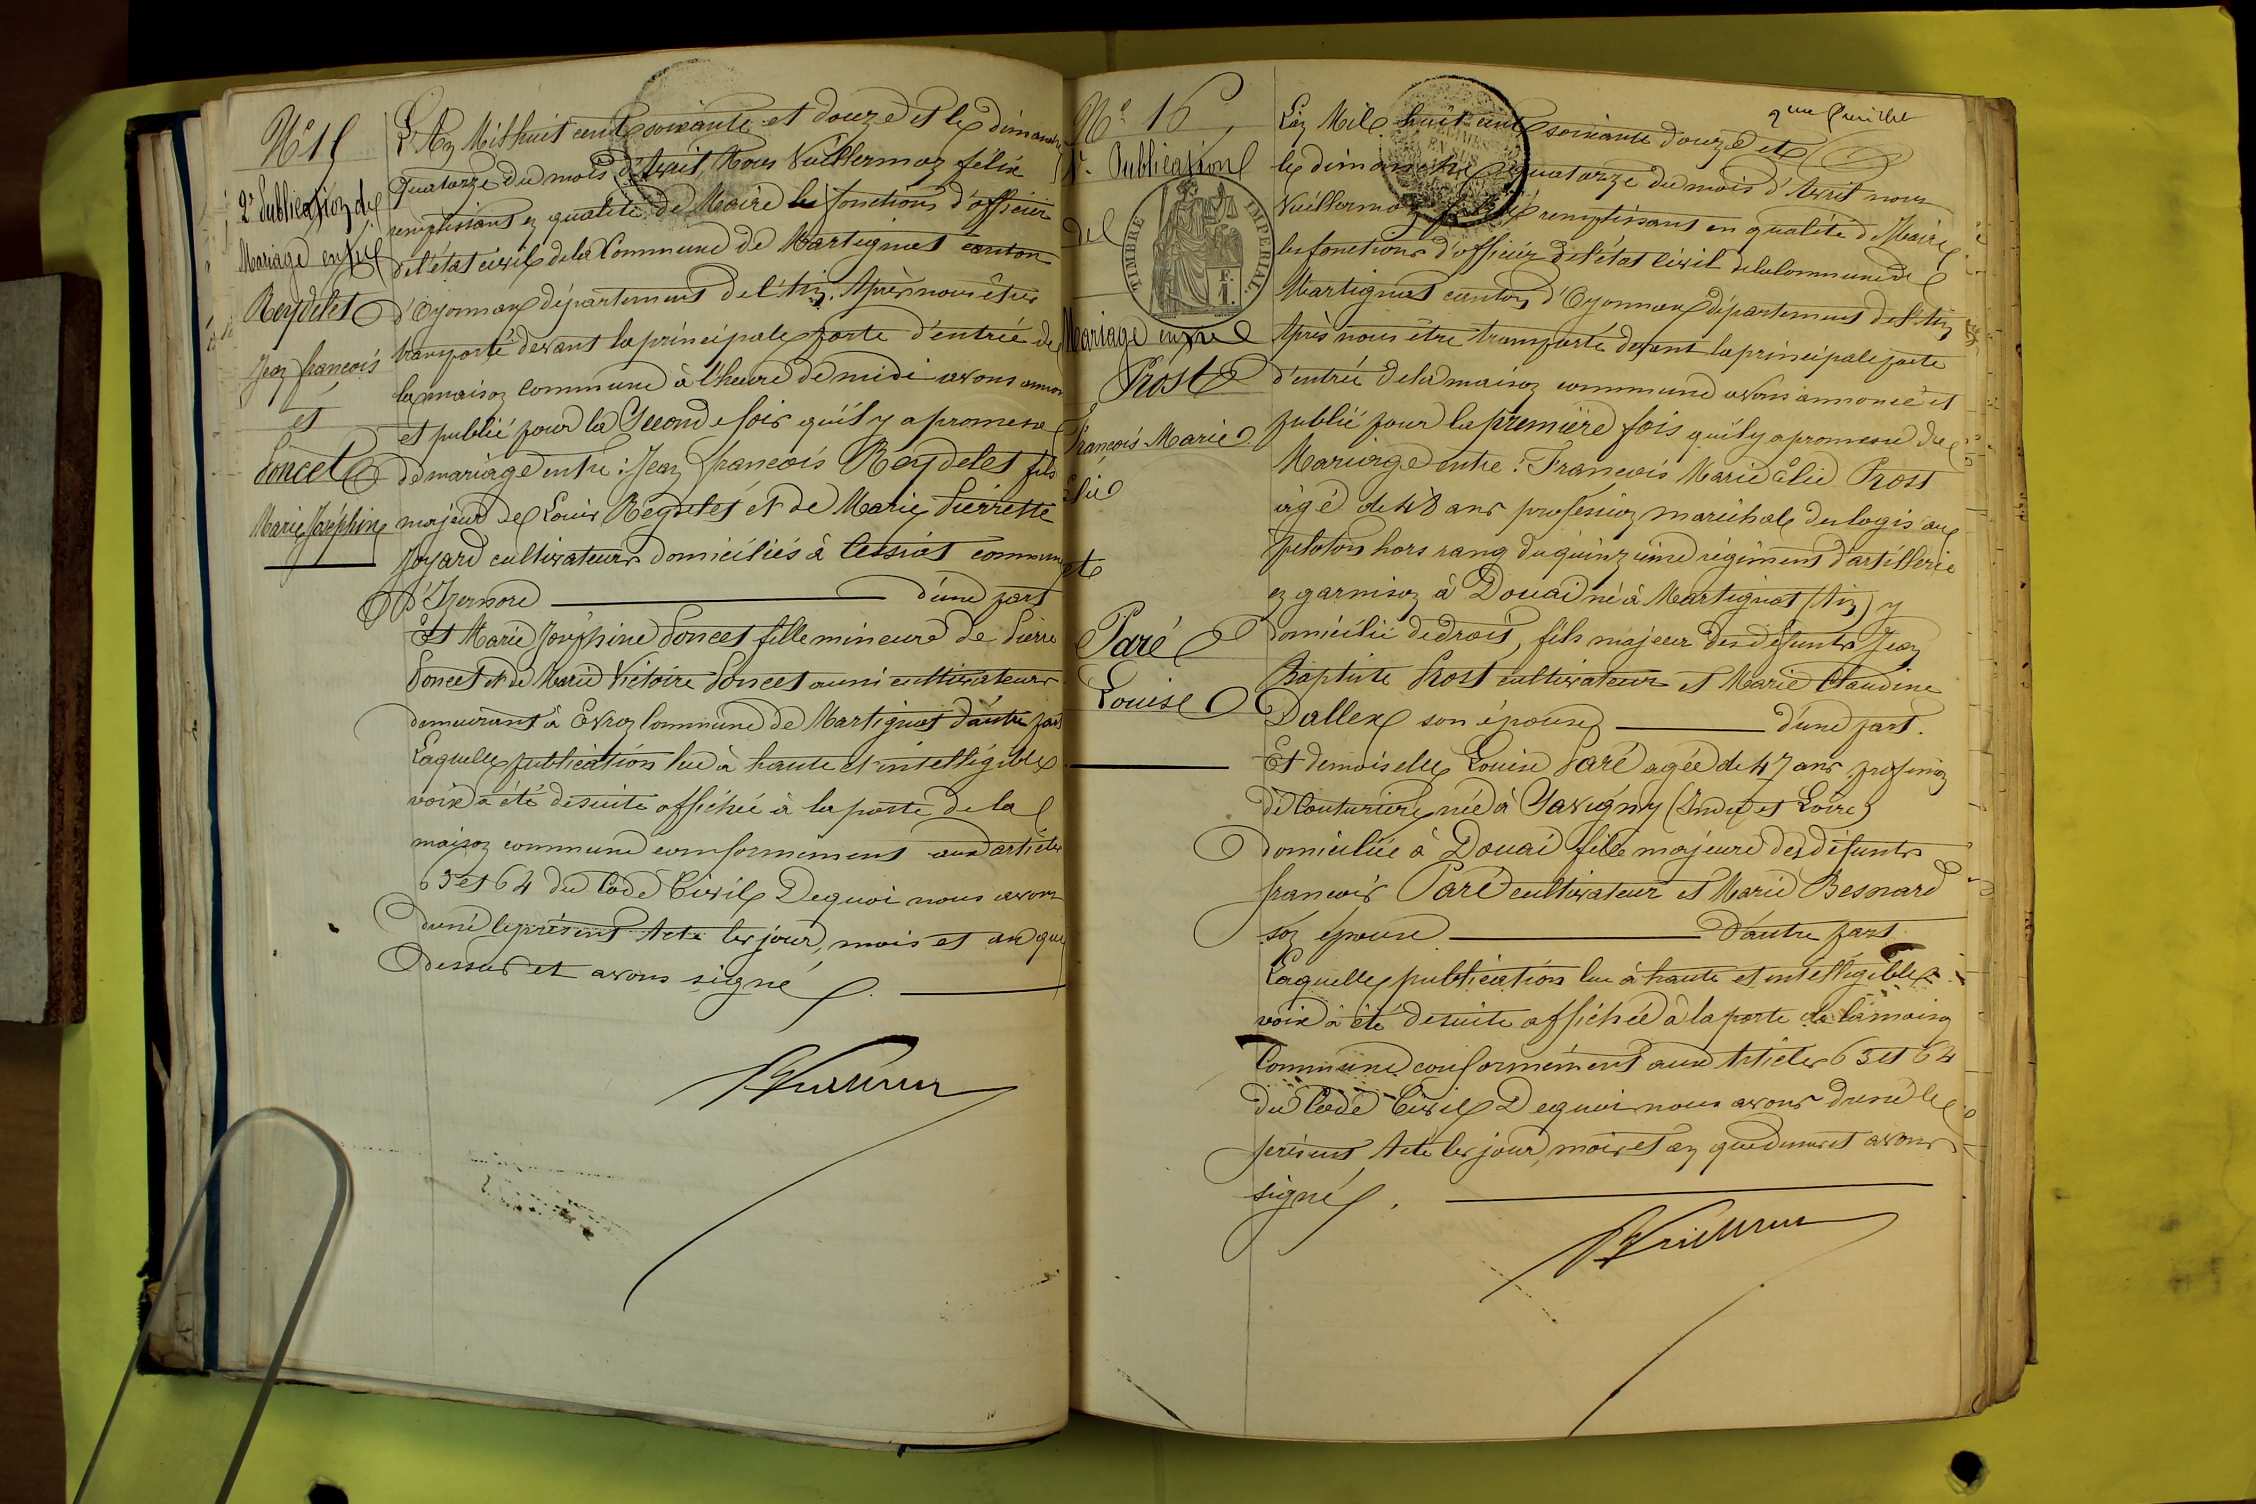 N° 15
2e Publication de
Mariage entre
Reydelet
Jean françois
et
Poncet
Marie Joséphine
L'An Mil huit cent soixante et douze et le dimanche
quatorze du mois d'Avril, Nous Vuillermoz félix
remplissant en qualité de Maire les fonctions d'officier
de l'état civil de la Commune de Martignat canton
d'Oyonnax département de l'Ain. Après nous être
transporté devant la principale porte d'entrée de
la maison commune à l'heure de midi avons annoncé
et publié pour la Seconde fois qu'il y a promesse
de mariage entre : Jean françois Reydelet fils
majeur de Louis Reydelet et de Marie Pierrette
Joyard cultivateurs domiciliés à Cessiat commune
d'Izernore d'une part
Et Marie Joséphine Poncet fille mineure de Pierre
Poncet et de Marie Victoire Poncet aussi cultivateurs
demeurant à Evron Commune de Martignat d'autre part
Laquelle publication lue à haute et intelligible
voix a été desuite affichée à la porte de la
maison commune conformément aux articles
63 et 64 du Code Civil Dequoi nous avons
dressé le présent Acte les jour, mois et an que
dessus et avons signé.
N° 16
1e Publication
de
TIMBRE IMPERIAL
F.
1.
Mariage entre
Prost
François Marie
Elie
et
Paré
Louise
2me feuillet
EN SUS
L'an Mil huit cent soixante douze et
le dimanche quatorze du mois d'Avril nous
Vuillermoz félix remplissant en qualité de Maire
les fonctions d'officier de l'état civil de la Commune de
Martignat canton d'Oyonnax département de l'Ain
Après nous être transporté devant la principale porte
d'entrée de la maison commune avons annoncé et
publié pour la première fois qu'il y a promesse de
Mariage entre : François Marie Elie Prost
âgé de 48 ans profession maréchal des logis au
peloton hors rang du quinzième régiment d'artillerie
en garnison à Douai né à Martignat (Ain) y
domicilié de droit, fils majeur des défunts Jean
Baptiste Prost cultivateur et Marie Claudine
Dallex son épouse d'une part.
Et demoiselle Louise Paré agée de 47 ans profession
de Couturière née à Savigny (Indre et Loire)
domiciliée à Douai fille majeure des défunts
françois Paré cultivateur et Marie Besnard
son épouse d'autre part.
Laquelle publication lue à haute et intelligible
voix a été desuite affichée à la porte de la maison
Commune conformément aux Articles 63 et 64
du Code Civil Dequoi nous avons dressé le
présent Acte les jour, mois et an que dessus et avons
signé.